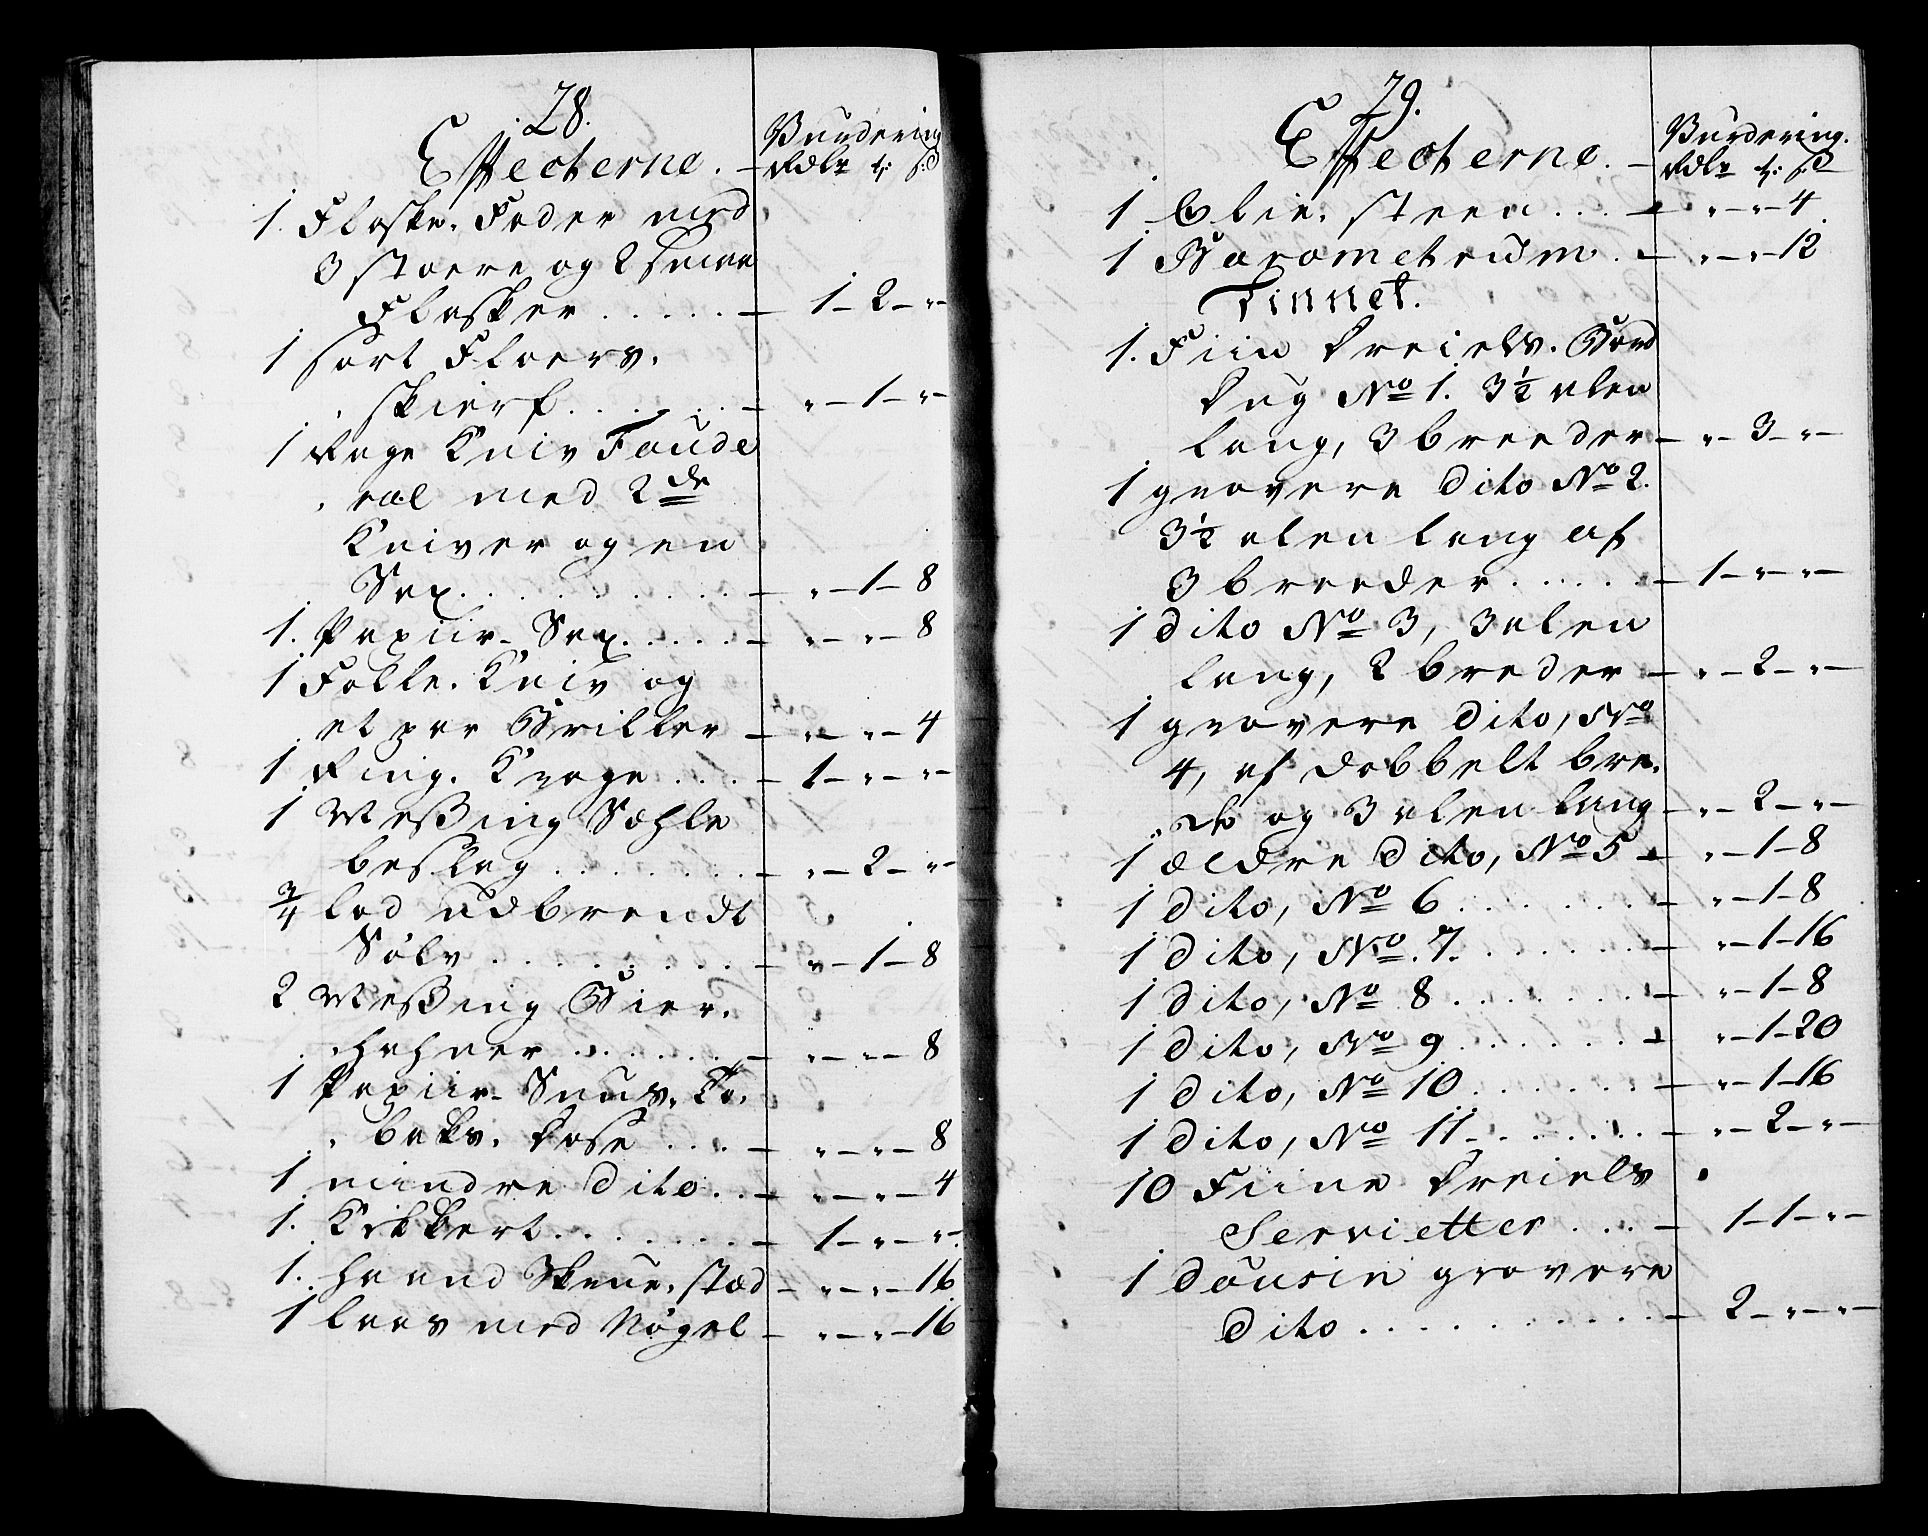 28.
Effecterne. - Vurdering
Rdlr ȶ: ß:
1. Flaske. Foder med
3 stoere og 2 smaa
Flasker ..... - 1 - 2 - "
1 sort Floers.
skierf ...... - " - 1 - "
1 Rage Kniv Foude
ral med 2de
Kniver og en
Sax .......... - " - 1 - 8
1. Papiir- Sax ..... - " - " - 8
1 Folle. Kniv og
et par Briller - " - " - 4
1 Ring. Krage .... - 1 - " - "
1 Meßing Sæhle
beslag ........ - " - 2 - "
3/4 lod udbrendt
Sølv ......... - " - 1 - 8
2 Meßing Øier.
hahner ....... - " - " - 8
1 Papiir- Snuus. To.
baks. Dose .... - " - " - 8
1 mindre Dito .. - " - " - 4
1. Kikkert ....... - 1 - " - "
1. haand Skrue. stæd - " - " - 16
1 laas med Nøgel - " - " - 16
29.
Effecterne. - Vurdering.
Rdlr ȶ: ß
1 Olie. steen .... - " - " - 4
1 Barometrum . - " - " - 12
Linnet.
1. Fiin Dreiels. Bord
Dug No 1. 3½ alen
lang, 3 breeder - " - 3 - "
1 grovere Dito No 2.
3½ alen lang af
3 breeder ...... - 1 - " - "
1 Dito No 3, 3 alen
lang, 2 breder - " - 2 - "
1 grovere Dito, No
4, af dobbelt bre.
de og 3 alen lang - " - 2 - "
1 ældre Dito, No 5 - " - 1 - 8
1 Dito, No 6 ....... - " - 1 - 8
1 Dito, No. 7. ...... - " - 1 - 16
1 Dito, No 8 ....... - " - 1 - 8
1 Dito, No 9 ....... - " - 1 - 20
1 Dito, No 10 ...... - " - 1 - 16
1 Dito, No 11 ....... - " - 2 - "
10 Fiine Dreiels
Servietter .... - 1 - 1 - "
1 Dousin grovere
Dito ........... - 2 - " - "